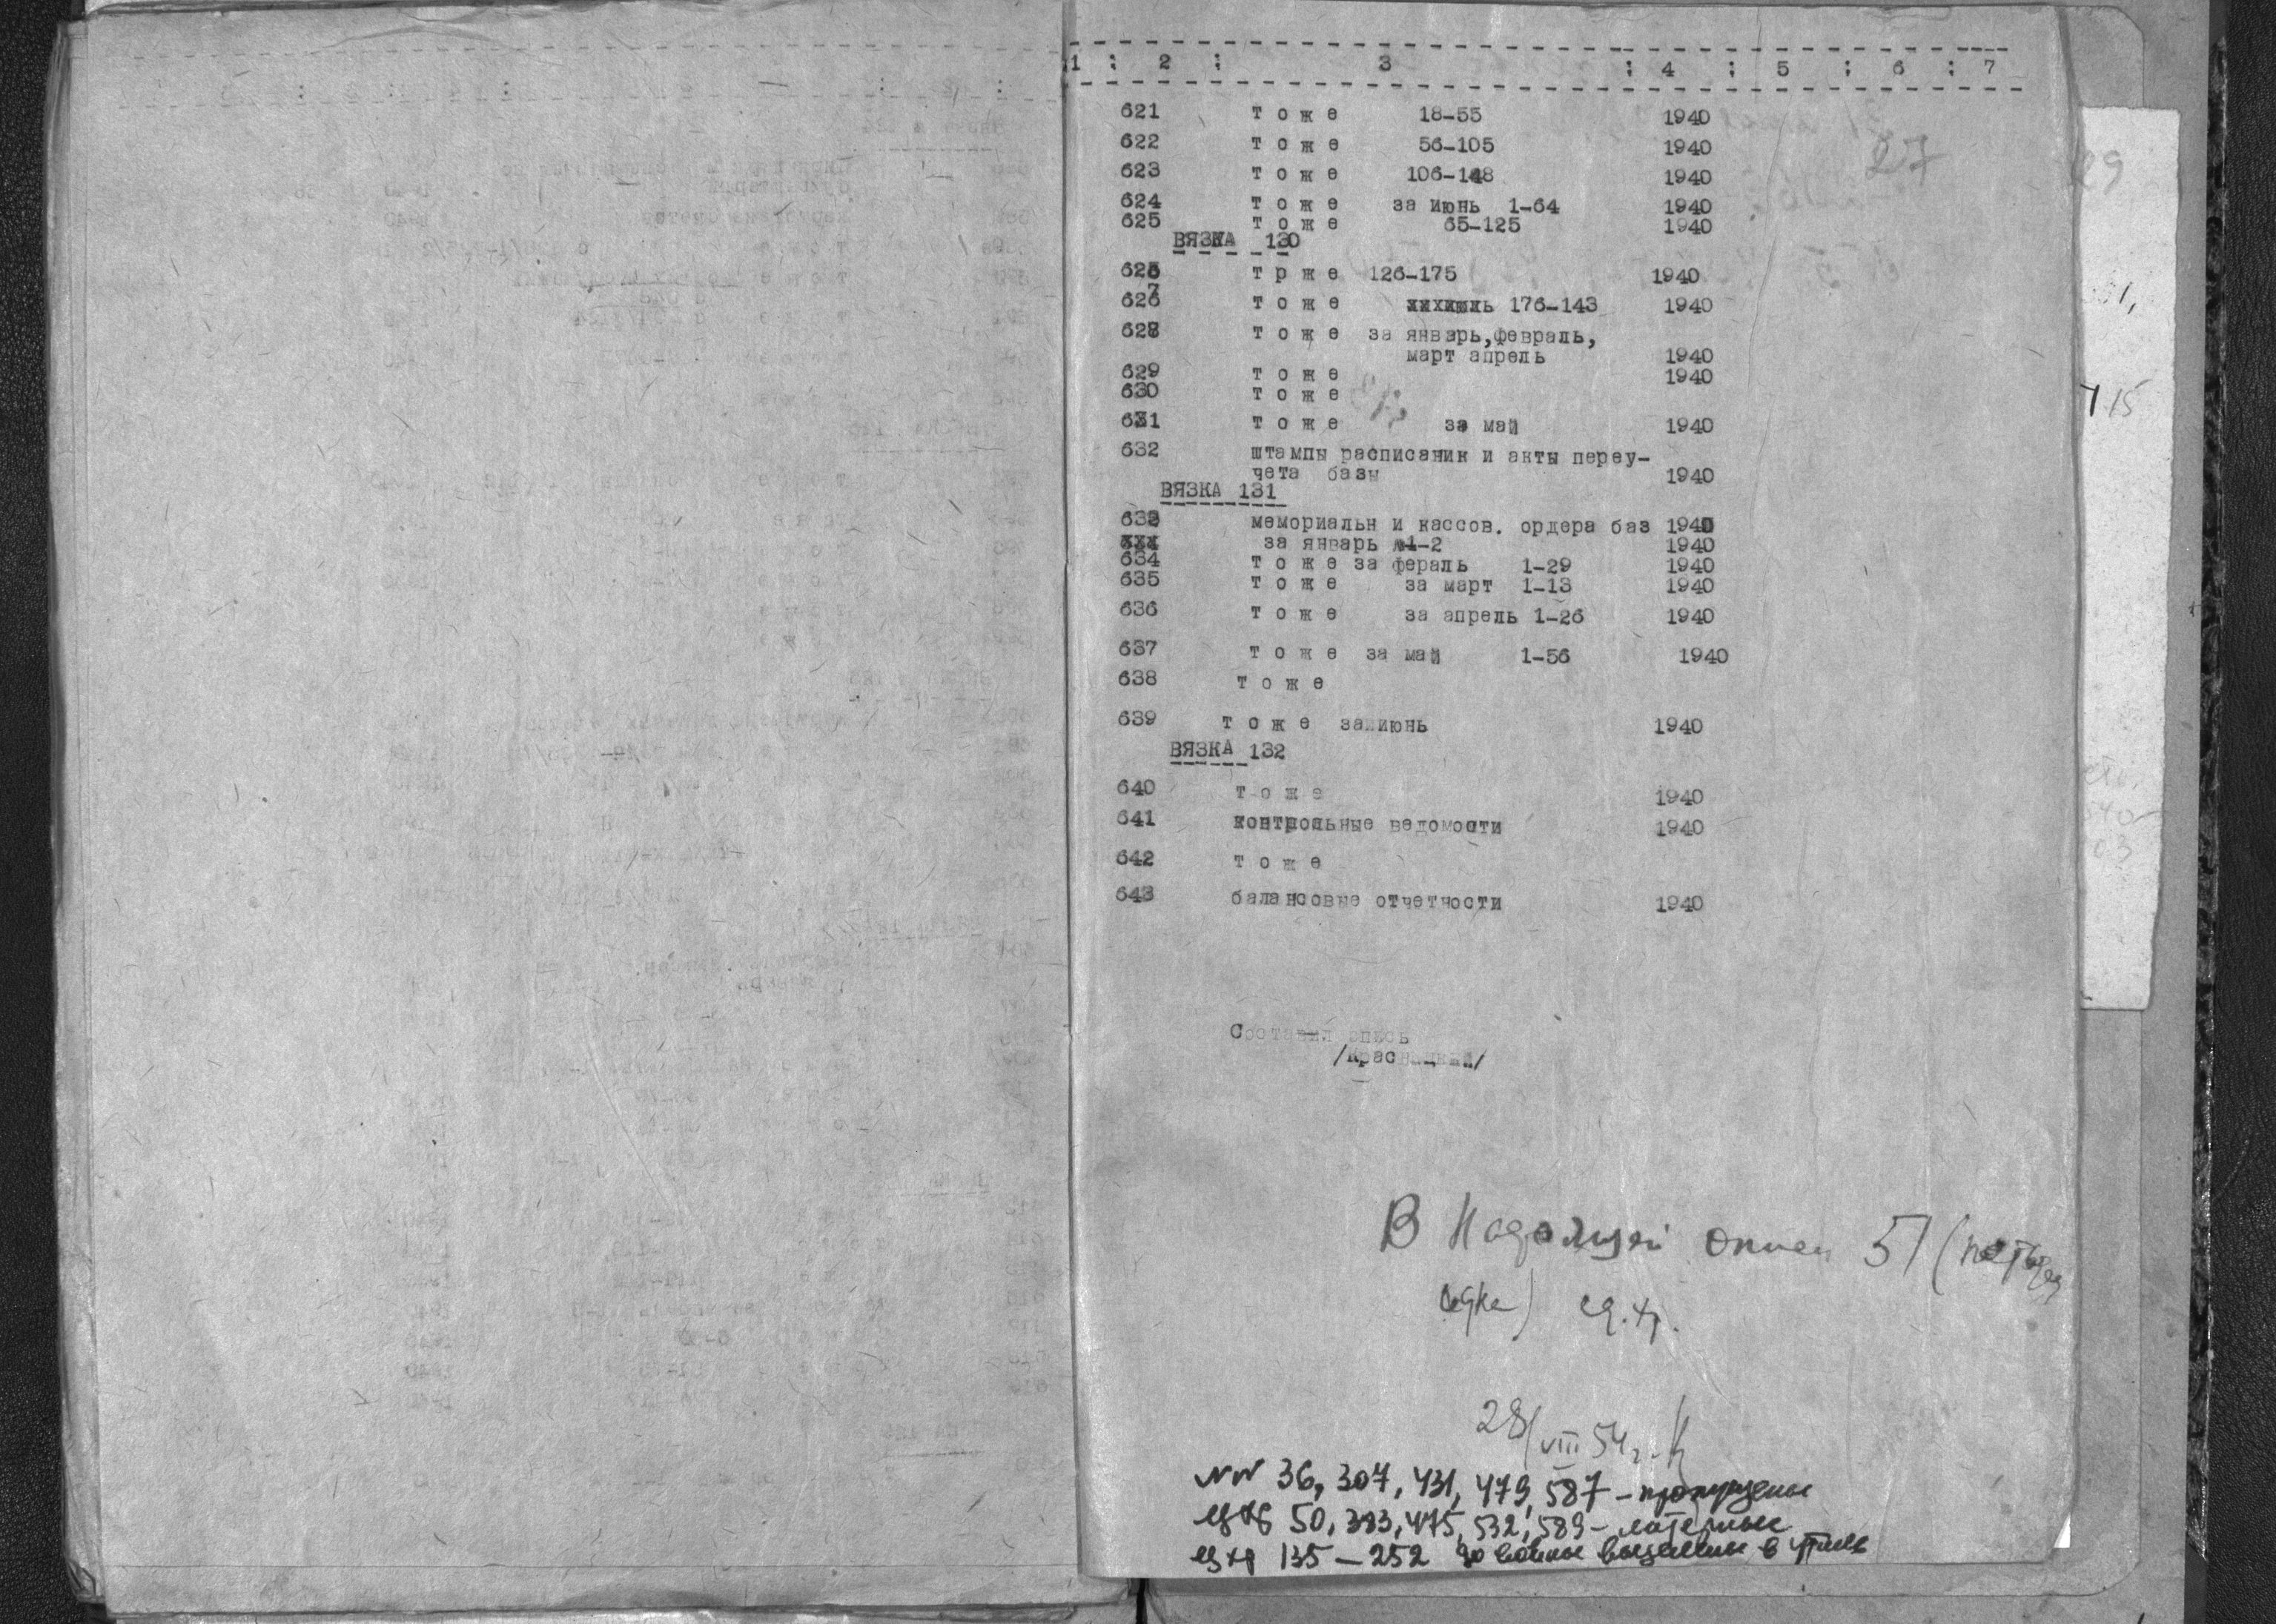 1 : 2 : 3 : 4 : 5 : 6 : 7
27
621 т о ж е 18-55 1940
622 т о ж е 56-105 1940
623 т о ж е 106-148 1940
624 т о ж е за июнь 1-64 1940
625 т о ж е 65-125 1940
ВЯЗКА 130
626 т р ж е 126-175 1940
627 т о ж е 176-143 1940
628 т о ж е за январь,февраль,
март апрель 1940
629 т о ж е 1940
630 т о ж е
631 т о ж е за май 1940
632 штампы расписании и акты переу-
чета базы 1940
ВЯЗКА 131
633 мемориальн и кассов. ордера баз 1940
за январь 1-2 1940
634 т о ж е за фераль 1-29 1940
635 т о ж е за март 1-13 1940
636 т о ж е за апрель 1-26 1940
637 т о ж е за май 1-56 1940
638 т о ж е
639 т о ж е за июнь 1940
ВЯЗКА 132
640 т о ж е 1940
641 контрольные ведомости 1940
642 т о ж е
643 балансовые отчетности 1940
Составил опись
В 51
ед. хр.
28/VIII 54 г.
NN 36, 307, 431, 479, 587 - пропущены
ед хр 50, 383, 475, 532, 589 - литерные
ед хр 135 - 252 до войны выделены в утиль
29